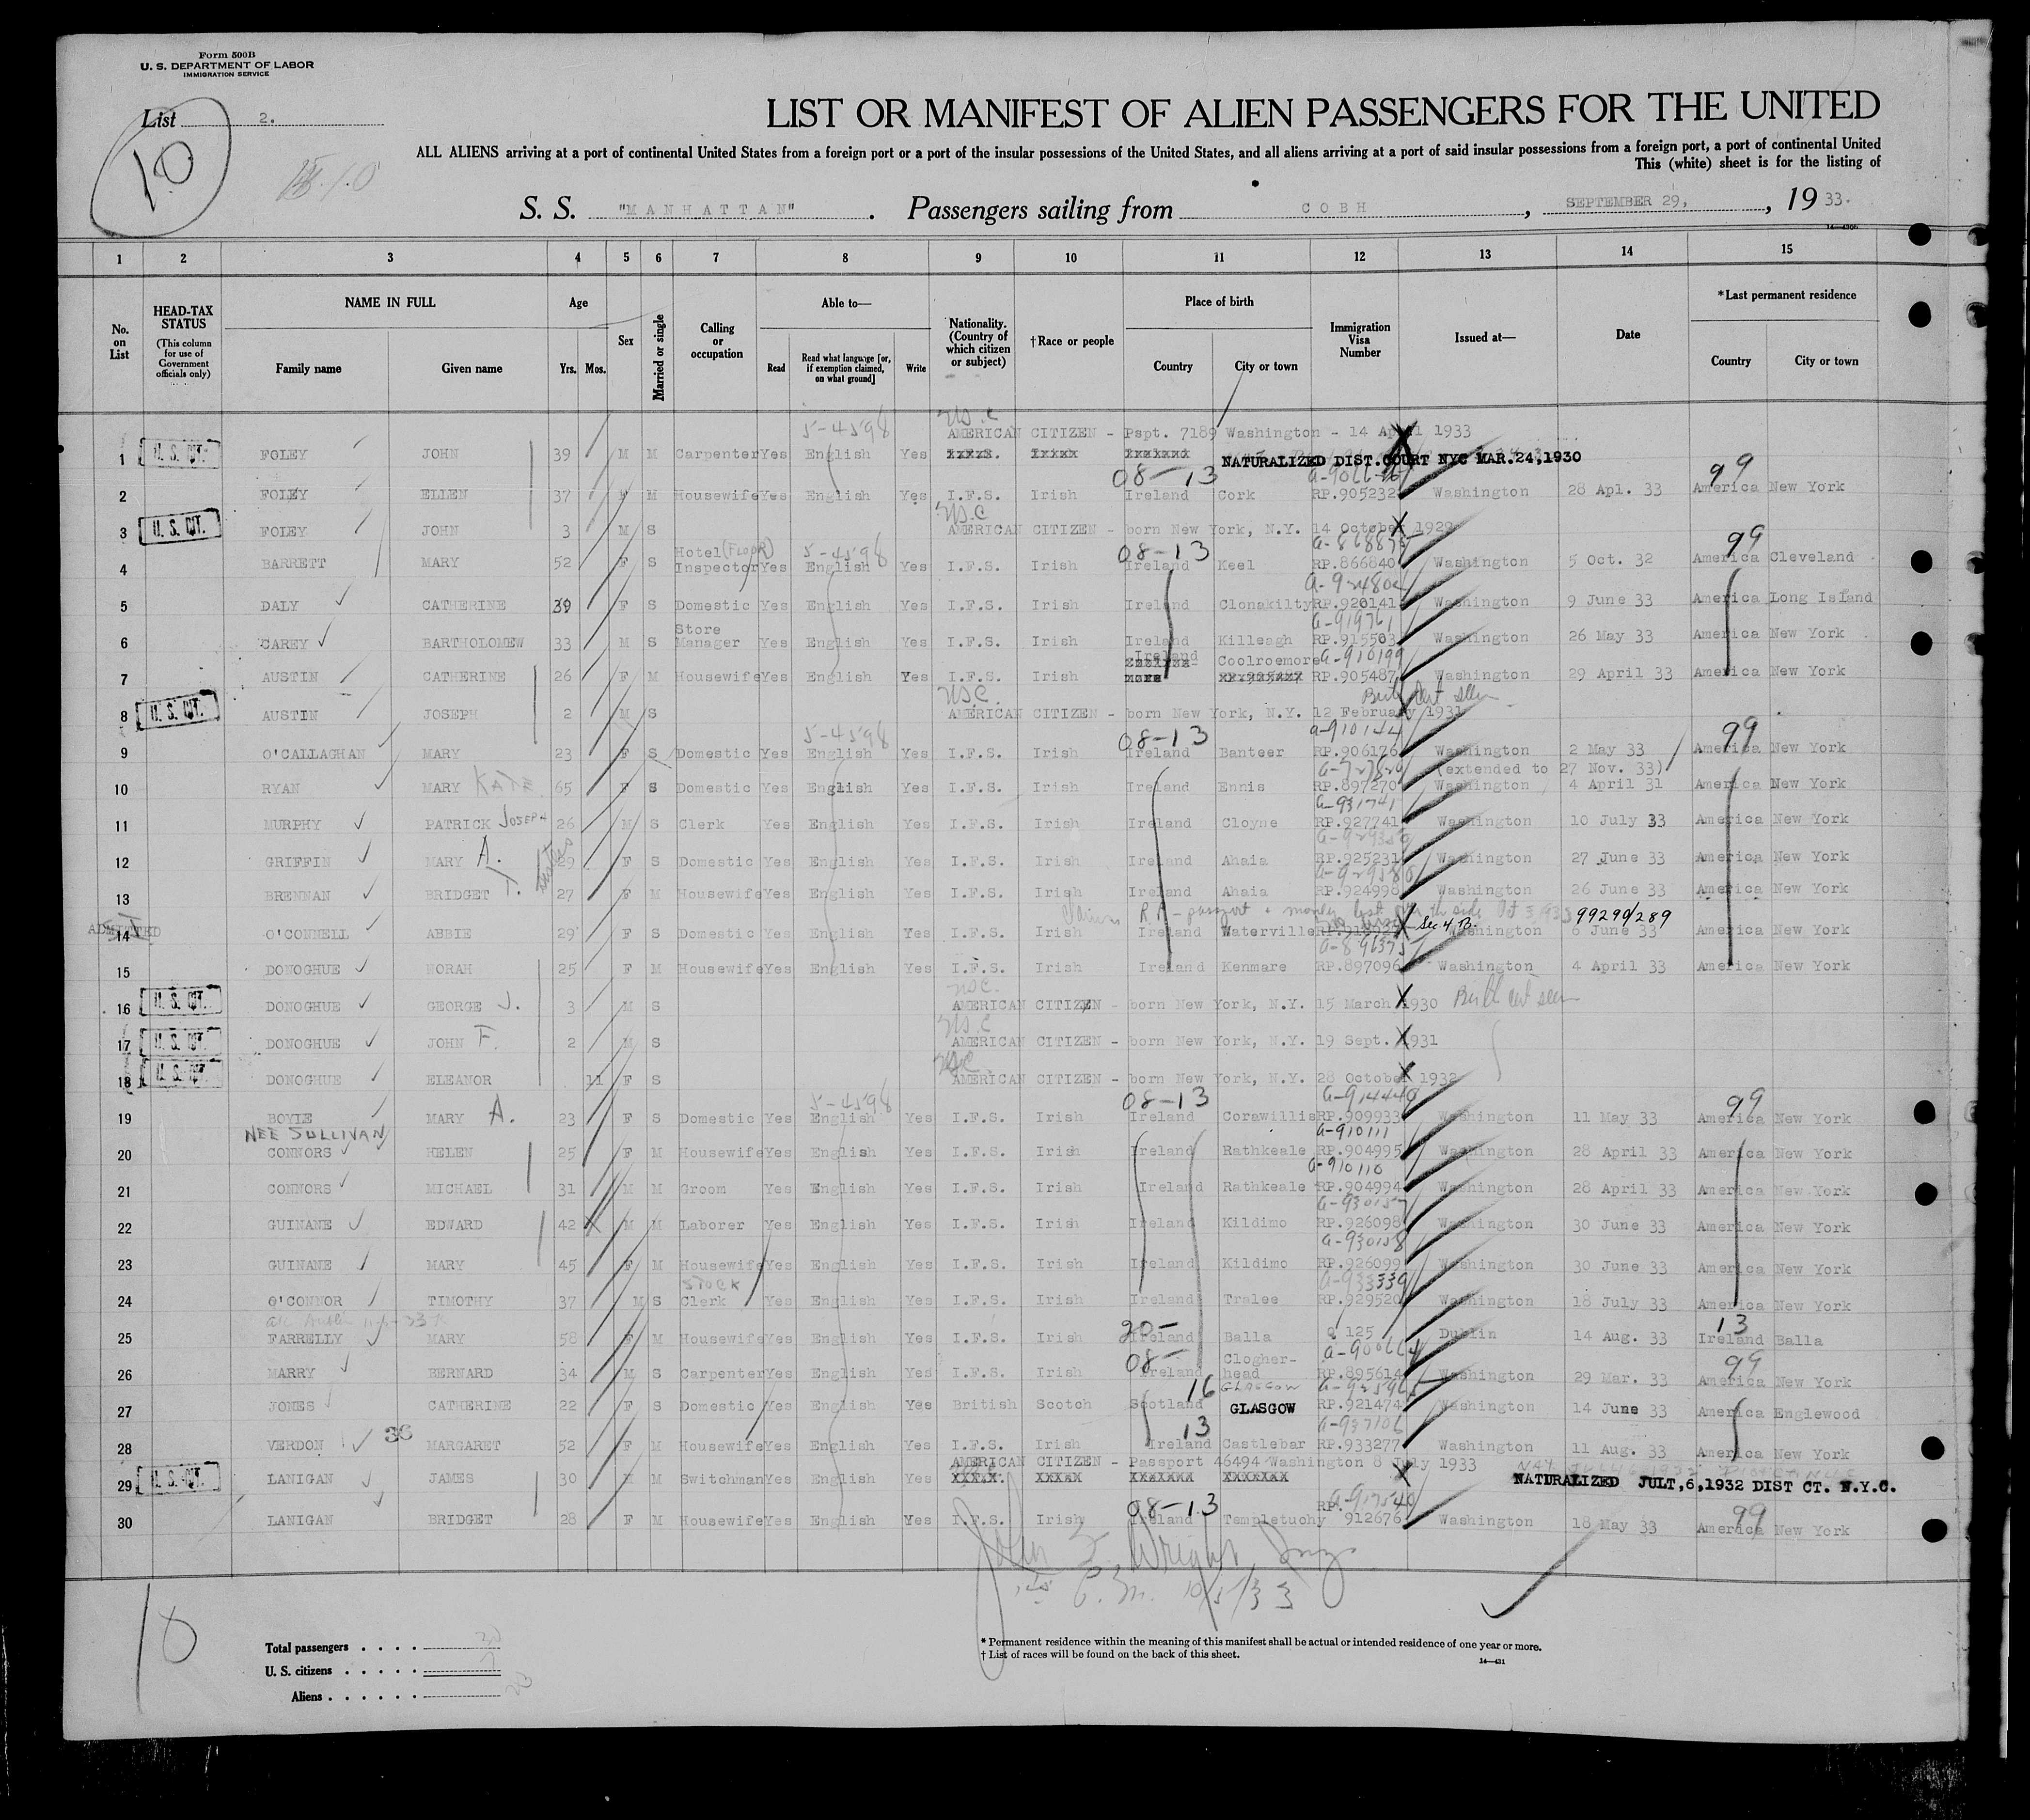 Form 500B
U. S. DEPARTMENT OF LABOR
IMMIGRATION SERVICE
List 2.
10
LIST OR MANIFEST OF ALIEN PASSENGERS FOR THE UNITED
ALL ALIENS arriving at a port of continental United States from a foreign port or a port of the insular possessions of the United States, and all aliens arriving at a port of said insular possessions from a foreign port, a port of continental United
This (white) sheet is for the listing of
S. S. "MANHATTAN" . Passengers sailing from COBH , SEPTEMBER 29, , 19 33.
1 2 3 4 5 6 7 8 9 10 11 12 13 14 15
No. on List
HEAD-TAX STATUS (This column for use of Government officials only)
NAME IN FULL Family name Given name
Age Yrs. Mos.
Sex
Married or single
Calling or occupation
Able to— Read Read what language [or, if exemption claimed, on what ground] Write
Nationality. (Country of which citizen or subject)
†Race or people
Place of birth Country City or town
Immigration Visa Number
Issued at—
Date
*Last permanent residence Country City or town
5-4598 U.S.C
AMERICAN CITIZEN - Pspt. 7189 Washington - 14 April 1933
1 U. S. CIT. FOLEY JOHN 39 M M Carpenter Yes English Yes NATURALIZED DIST. COURT NYC MAR. 24, 1930
08-13 99
2 FOLEY ELLEN 37 F M Housewife Yes English Yes I.F.S. Irish Ireland Cork RP.905232 Washington 28 Apl. 33 America New York
U.S.C
3 U. S. CIT. FOLEY JOHN 3 M S AMERICAN CITIZEN - born New York, N.Y. 14 October 1929
Hotel (FLOOR) 5-4598 08-13 99
4 BARRETT MARY 52 F S Inspector Yes English Yes I.F.S. Irish Ireland Keel RP.866840 Washington 5 Oct. 32 America Cleveland
5 DALY CATHERINE 39 F S Domestic Yes English Yes I.F.S. Irish Ireland Clonakilty RP.920141 Washington 9 June 33 America Long Island
Store G-919761
6 CAREY BARTHOLOMEW 33 M S Manager Yes English Yes I.F.S. Irish Ireland Killeagh RP.915503 Washington 26 May 33 America New York
Ireland Coolroemore G-910199
7 AUSTIN CATHERINE 26 F M Housewife Yes English Yes I.F.S. Irish RP.905487 Washington 29 April 33 America New York
U.S.C. Birth Cert seen
8 U. S. CIT. AUSTIN JOSEPH 2 M S AMERICAN CITIZEN - born New York, N.Y. 12 February 1931
5-4598 08-13 G-910144 99
9 O'CALLAGHAN MARY 23 F S Domestic Yes English Yes I.F.S. Irish Ireland Banteer RP.906176 Washington 2 May 33 America New York
(extended to 27 Nov. 33)
10 RYAN MARY KATE 65 F S Domestic Yes English Yes I.F.S. Irish Ireland Ennis RP.897270 Washington 4 April 31 America New York
G-931741
11 MURPHY PATRICK JOSEPH 26 M S Clerk Yes English Yes I.F.S. Irish Ireland Cloyne RP.927741 Washington 10 July 33 America New York
12 GRIFFIN MARY A. 29 F S Domestic Yes English Yes I.F.S. Irish Ireland Ahaia RP.925231 Washington 27 June 33 America New York
13 BRENNAN BRIDGET T. 27 F M Housewife Yes English Yes I.F.S. Irish Ireland Ahaia RP.924998 Washington 26 June 33 America New York
Claims R.P. - passport + money lost 99290/289
ADMITTED 14 O'CONNELL ABBIE 29 F S Domestic Yes English Yes I.F.S. Irish Ireland Waterville Sec 4 B. Washington 6 June 33 America New York
15 DONOGHUE NORAH 25 F M Housewife Yes English Yes I.F.S. Irish Ireland Kenmare RP.897096 Washington 4 April 33 America New York
USC.
16 U. S. CIT. DONOGHUE GEORGE J. 3 M S AMERICAN CITIZEN - born New York, N.Y. 15 March 1930 Birth cert seen
U.S.C
17 U. S. CIT. DONOGHUE JOHN F. 2 M S AMERICAN CITIZEN - born New York, N.Y. 19 Sept. 1931
USC
18 U. S. CIT. DONOGHUE ELEANOR 11 F S AMERICAN CITIZEN - born New York, N.Y. 28 October 1932
5-4598 08-13 G-914440 99
19 BOYLE MARY A. 23 F S Domestic Yes English Yes I.F.S. Irish Ireland Corawillis RP.909933 Washington 11 May 33 America New York
NEE SULLIVAN G-910111
20 CONNORS HELEN 25 F M Housewife Yes English Yes I.F.S. Irish Ireland Rathkeale RP.904995 Washington 28 April 33 America New York
G-910110
21 CONNORS MICHAEL 31 M M Groom Yes English Yes I.F.S. Irish Ireland Rathkeale RP.904994 Washington 28 April 33 America New York
G-930157
22 GUINANE EDWARD 42 M M Laborer Yes English Yes I.F.S. Irish Ireland Kildimo RP.926098 Washington 30 June 33 America New York
G-930158
23 GUINANE MARY 45 F M Housewife Yes English Yes I.F.S. Irish Ireland Kildimo RP.926099 Washington 30 June 33 America New York
STOCK G-933339
24 O'CONNOR TIMOTHY 37 M S Clerk Yes English Yes I.F.S. Irish Ireland Tralee RP.929520 Washington 18 July 33 America New York
20- 13
25 FARRELLY MARY 58 F M Housewife Yes English Yes I.F.S. Irish Ireland Balla Q 125 Dublin 14 Aug. 33 Ireland Balla
08- Clogher- G-900664 99
26 MARRY BERNARD 34 M S Carpenter Yes English Yes I.F.S. Irish Ireland head RP.895614 Washington 29 Mar. 33 America New York
16 GLASGOW
27 JONES CATHERINE 22 F S Domestic Yes English Yes British Scotch Scotland GLASGOW RP.921474 Washington 14 June 33 America Englewood
36 13 G-937106
28 VERDON MARGARET 52 F M Housewife Yes English Yes I.F.S. Irish Ireland Castlebar RP.933277 Washington 11 Aug. 33 America New York
AMERICAN CITIZEN - Passport 46494 Washington 8 July 1933
29 U. S. CIT. LANIGAN JAMES 30 M M Switchman Yes English Yes NATURALIZED JULT,6,1932 DIST CT. N.Y.C.
08-13 RP. G-917540 99
30 LANIGAN BRIDGET 28 F M Housewife Yes English Yes I.F.S. Irish Ireland Templetuohy 912676 Washington 18 May 33 America New York
John Wright
10/5/33
10
Total passengers . . . . 30
U. S. citizens . . . . . 7
Aliens . . . . . . 23
* Permanent residence within the meaning of this manifest shall be actual or intended residence of one year or more.
† List of races will be found on the back of this sheet.
14—431